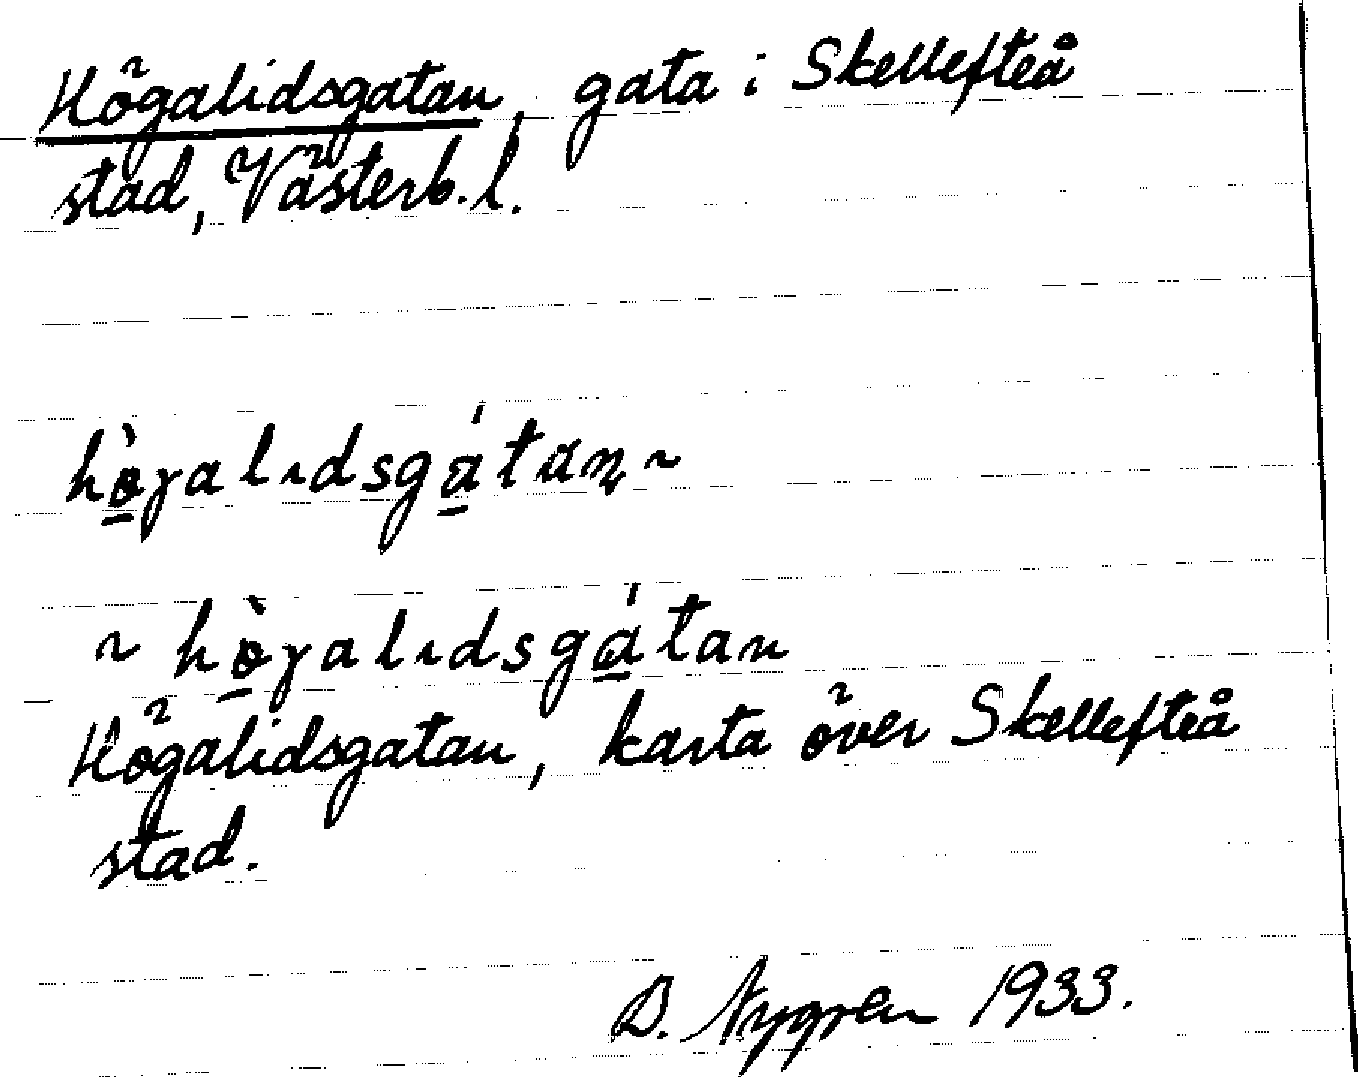 Högalidsgatan, gata i Skellefteå
stad, Västerb. l.
hø̠̀γalıdsga̠̍tan̥ ~
~ hø̠̀γalıdsga̠̍tan
Högalidsgatan, karta över Skellefteå
stad.
D. Nygren 1933.